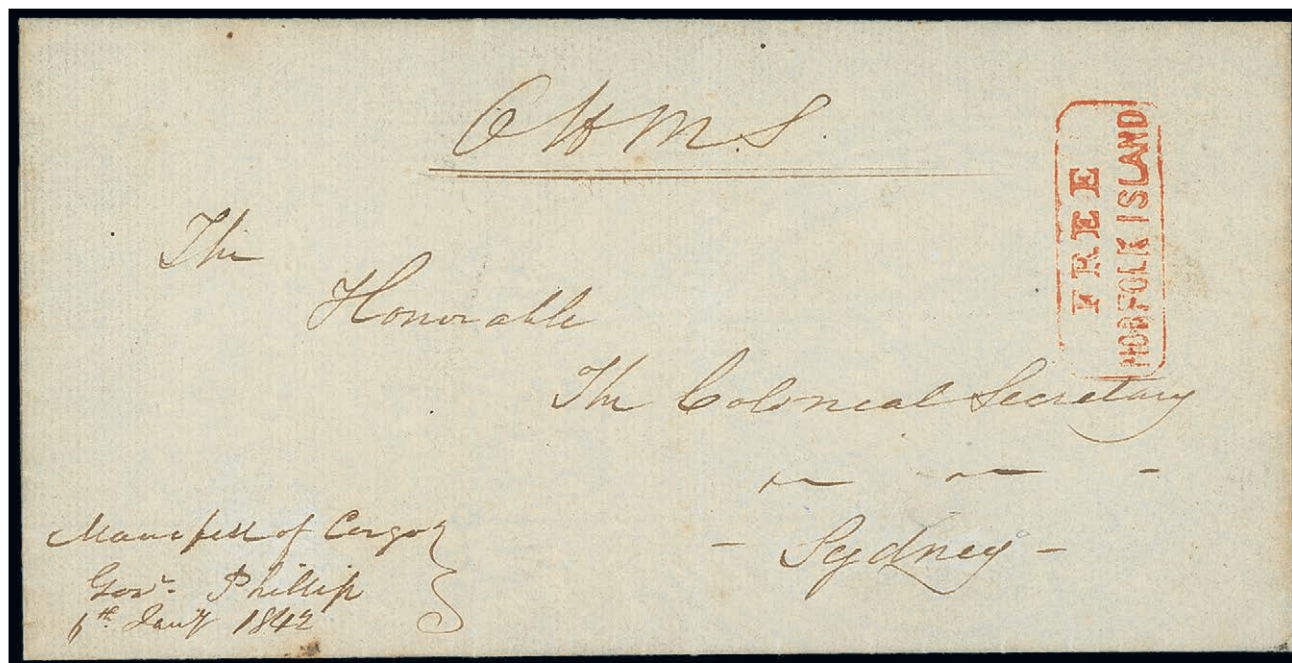 O H M. S.
FREE
NORFOLK ISLAND
The
Honorable
The Colonial Secretary
Sydney
Manifest of Cargo
Govr. Phillip
6th. Jany 1842